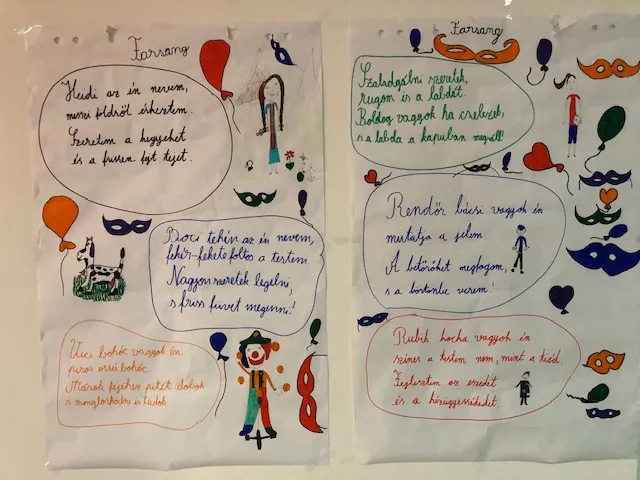 Farsang
Heidi az én nevem,
messzi földről érkeztem.
Szeretem a hegyeket
és a frissen fejt tejet.
Boci tehén az én nevem,
fehér-fekete foltos a testem.
Nagyon szeretek legelni,
s friss füvet megenni!
Vici bohóc vagyok én
piros orrú bohóc.
Mások fejéhez pitét dobok
s mongforkodni is tudok
Farsang
Szaladgálni szeretek,
rúgom is a labdát.
Boldog vagyok ha cselezek,
s a labda a kapuban megáll!
Rendőr bácsi vagyok én
mutatja a jelem.
A betörőket megfogom,
s a börtönbe verem!
Rubik kocka vagyok én
színes a testem nem, mint a tiéd.
Fejlesztem az eszedet
és a kézügyességedet.